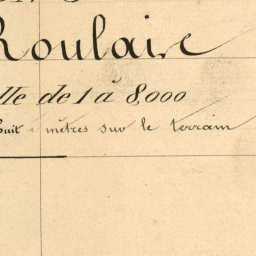 Roulaire
lle de 1 à 8,000
huit mètres sur le terrain